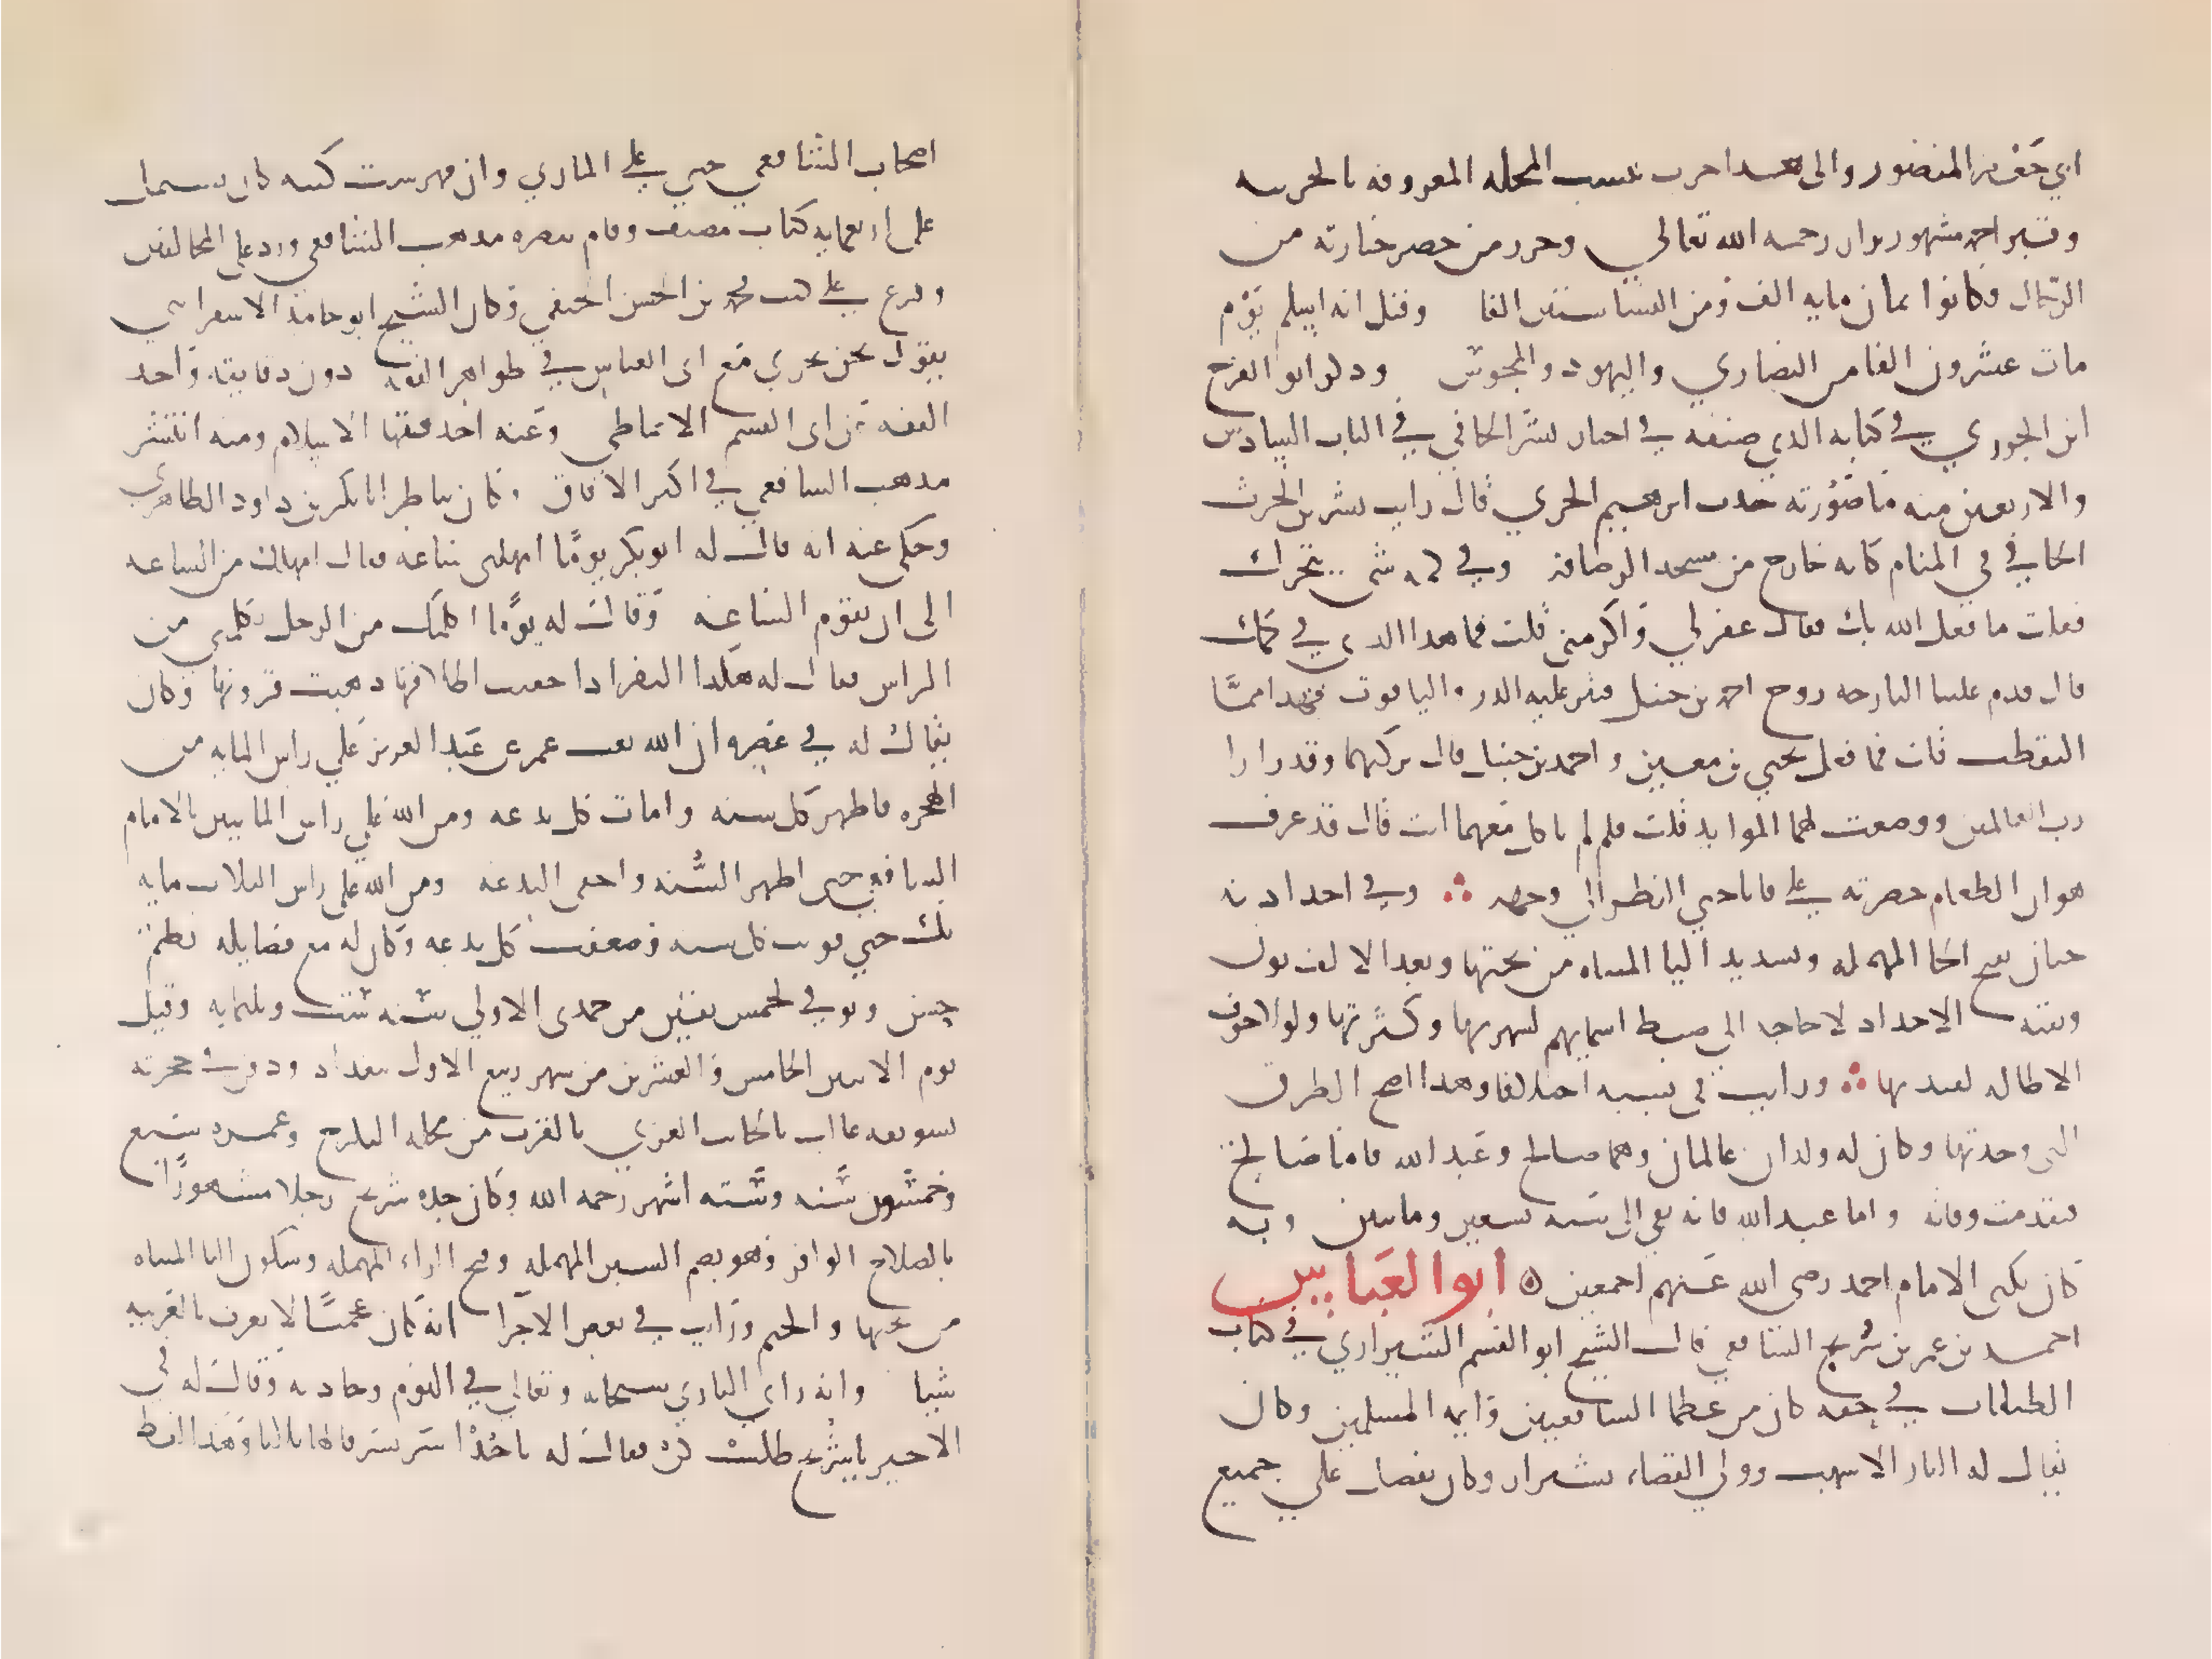 ابي جعفر المنصور والى هدا حرب تنسب المحله المعروفه بالحربيه
وقبر احمد مشهور بها يزار رحمه الله تعالي وحرز من حضر جنازته من
الرجال فكانوا ثمان مايه الف ومن النسا ستين الفا وقيل انه اسلم يوم
مات عشرون الفا من النصاري واليهود والمجوس وذكر ابو الفرج
ابن الجوزي في كتابه الذي صنفه في اخبار بشر الحافي في الباب السادس
والاربعين منه ما صورته حدث ابرهيم الحربي قال رايت بشر بن الحرث
الحافي في المنام كانه خارج من مسجد الرصافه وفي كمه شي يتحرك
فقلت ما فعل الله بك فقال غفر لي واكرمني قلت فما هدا الدي في كمك
قال قدم علينا البارحه روح احمد بن حنبل فنثر عليه الدر والياقوت فهدا مما
التقطت قلت فما فعل يحيي بن معين واحمد بن حنبل قال تركتهما وقد زارا
رب العالمين ووضعت لهما الموايد قلت فلم لم تاكل معهما انت قال قد عرف
هوان الطعام حضرته علي فاباحني النظر الي وجهه وفي اجداده
حيان بفتح الحا المهمله وتشديد اليا المثناه من تحتها وبعد الالف نون
وبقيه الاجداد لا حاجه الي ضبط اسمايهم لشهرتها وكثرتها ولولا خوف
الاطاله لقيدتها ورايت في نسبه اختلافا وهدا اصح الطرق
التي وجدتها وكان له ولدان عالمان وهما صالح وعبد الله فاما صالح
فتقدمت وفاته واما عبد الله فانه بقي الى سنه تسعين ومايتين وبه
كان يكنى الامام احمد رضي الله عنهم اجمعين ابو العباس
احمد بن عمر بن سريج الشافعي قال الشيخ ابو القسم الشيرازي في كتاب
الطبقات في حقه كان من عظما الشافعيين وايمه المسلمين وكان
يقال له الباز الاشهب وولي القضاء بشيراز وكان يفضل علي جميع
اصحاب الشافعي حتي علي المزني وان فهرست كتبه كان يشتمل
على اربعمايه كتاب مصنف وقام بنصره مدهب الشافعي ورد على المخالفين
وفرع علي كتب محمد بن الحسن الحنفي وكان الشيخ ابو حامد الاسفرايني
يقول نحن نجري مع ابى العباس في ظواهر الفقه دون دقايقه واخد
الفقه عن ابى القسم الانماطي وعنه اخد فقها الاسلام ومنه انتشر
مدهب الشافعي في اكثر الافاق وكان يناظر ابا بكر بن داود الظاهري
وحكى عنه انه قال له ابو بكر يوما امهلني ساعه فقال امهلتك من الساعه
الى ان تقوم الساعه وقال له يوما اكلمك من الرجل تكلمني من
الراس فقال له هكدا البقر ادا حفيت اظلافها دهنت قرونها وكان
يقال له في عصره ان الله بعث عمر بن عبد العزيز علي راس المايه من
الهجره فاظهر كل سنه وامات كل بدعه ومن الله علي راس المايتين بالامام
الشافعي حتى اظهر السنه واخفى البدعه ومن الله على راس الثلاث مايه
بك حتي قويت كل سنه وضعفت كل بدعه وكان له مع فضايله نظم
حسن وتوفي لخمس بقين من جمدى الاولي سنه ست وثلثمايه وقيل
يوم الاثنين الخامس والعشرين من شهر ربيع الاول ببغداد ودفن في حجرته
بسويقه غالب بالجانب الغربي بالقرب من محله الكرخ وعمره سبع
وخمسون سنه وسته اشهر رحمه الله وكان جده سريج رجلا مشهورا
بالصلاح الوافر وهو بضم السين المهمله وفتح الراء المهمله وسكون اليا المثناه
من تحتها والجيم ورايت في بعض الاجزا انه كان عجميا لا يعرف بالعربيه
شيا وانه راي الباري سبحانه وتعالي في النوم وحادثه وقال له في
الاخير يا سريج طلب كن فقال له يا خدا سر بسر قالها ثلاثا وهدا اللفظ